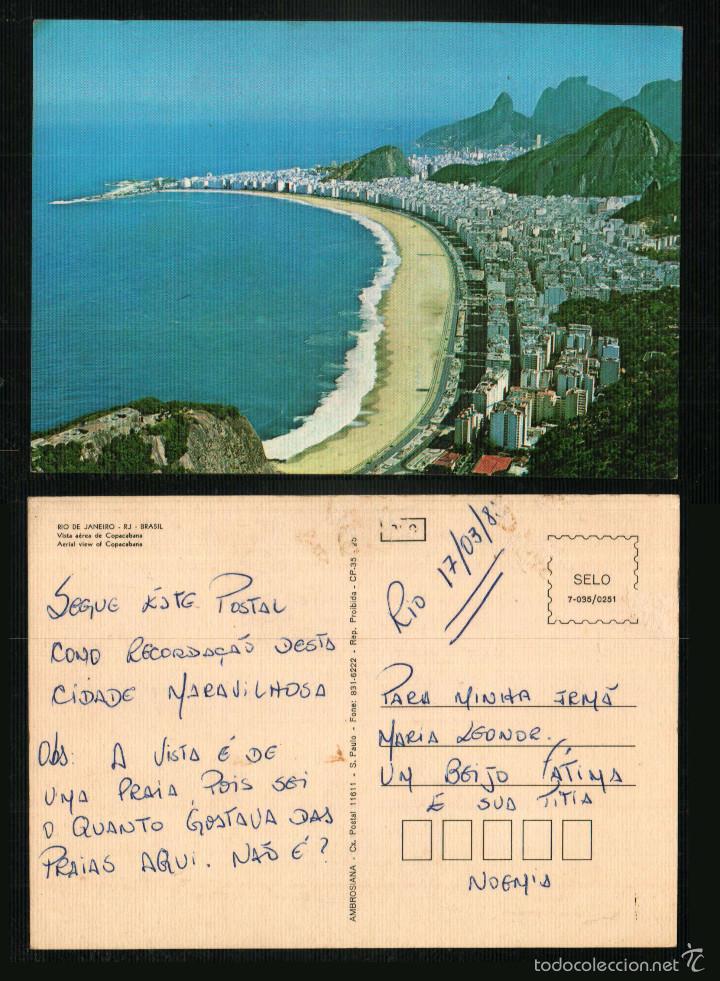 RIO DE JANEIRO - RJ - BRASIL
Vista aérea de Copacabana
Aerial view of Copacabana
SEGUE ÊSTE POSTAL
COMO RECORDAÇÃO DESTA
CIDADE MARAVILHOSA
Obs: A VISTA É DE
UMA PRAIA, POIS SEI
O QUANTO GOSTAVA DAS
PRAIAS AQUI. NÃO É?
AMBROSIANA - Cx. Postal 11611 - S. Paulo - Fone: 831-6222 - Rep. Proibida - CP-35 - 25
RIO 17/03/8
SELO
7-035/0251
PARA MINHA IRMÃ
MARIA LEONOR.
UM BEIJO FÁTIMA
E SUA TITIA
NOEMIA
todocoleccion.net tc